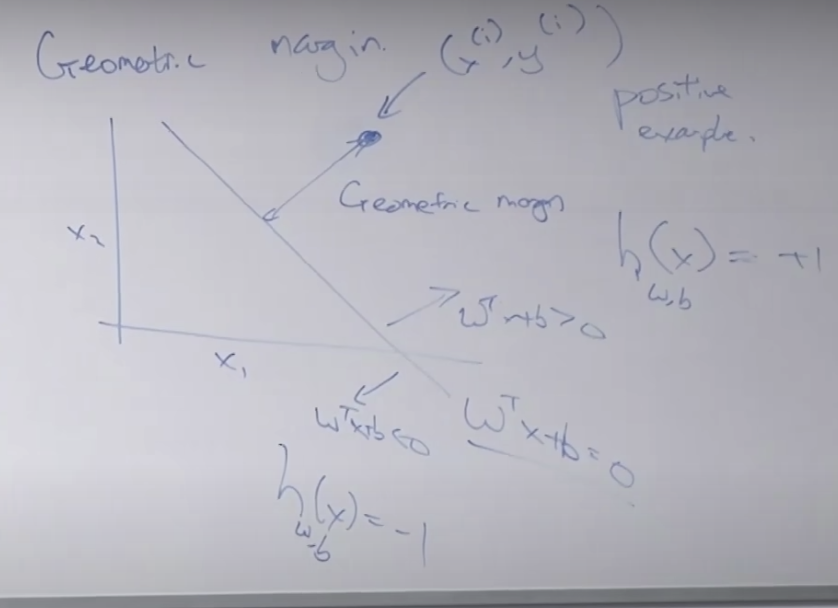 Geometric margin. (x^(i), y^(i))
positive
example.
x₂
Geometric margin
h_w,b(x) = +1
w^T x+b > 0
x₁
w^T x+b < 0
w^T x+b = 0
h_w,b(x) = -1